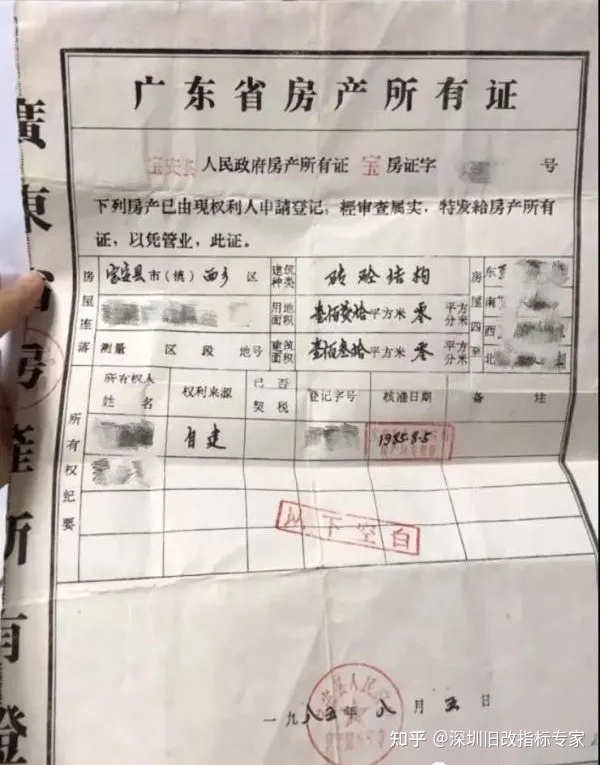 广东省房产所有证
宝安县人民政府房产所有证 宝 房证字 号
下列房产已由现权利人申請登记，經审查属实，特发給房产所有
证，以凭管业，此证。
房屋座落 宝安县市（镇）西乡 区 建筑种类 砖砼结构 房屋四至 东
用地面积 平方米 零 平方分米 南
西
测量 区 段 地号 建筑面积 壹佰叁拾平方米 零 平方分米 北
所有权纪要 所有权人姓名 权利来源 已否契税 登记字号 核准日期 备注
自建 1985.8.5
以下空白
一九八五年八月五日
廣東省房產所有證
知乎 @深圳旧改指标专家